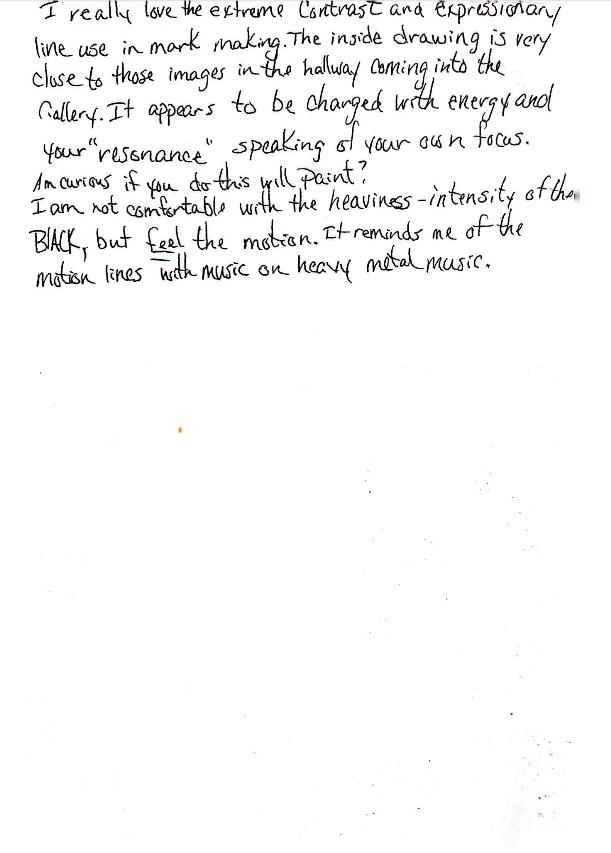 I really love the extreme Contrast and Expressionary
line use in mark making. The inside drawing is very
close to those images in the hallway coming into the
Gallery. It appears to be charged with energy and
your "resonance" speaking of your own focus.
Am curious if you do this will paint?
I am not comfortable with the heaviness - intensity of the
BLACK, but feel the motion. It reminds me of the
motion lines with music on heavy metal music.